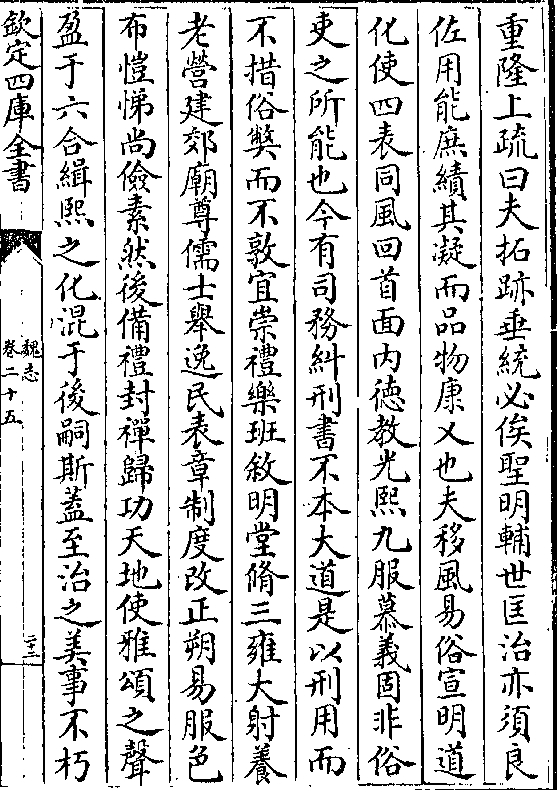 重隆上疏曰夫拓跡垂統必俟聖明輔世匡治亦須良
佐用能庶績其凝而品物康乂也夫移風易俗宣明道
化使四表同風回首面內德教光熙九服慕義固非俗
吏之所能也今有司務糾刑書不本大道是以刑用而
不措俗獘而不敦宜崇禮樂班敘明堂脩三雍大射養
老營建郊廟尊儒士舉逸民表章制度改正朔易服色
布愷悌尚儉素然後備禮封禪歸功天地使雅頌之聲
盈于六合緝熙之化混于後嗣斯蓋至治之美事不朽
欽定四庫全書
魏志
卷二十五
二十二